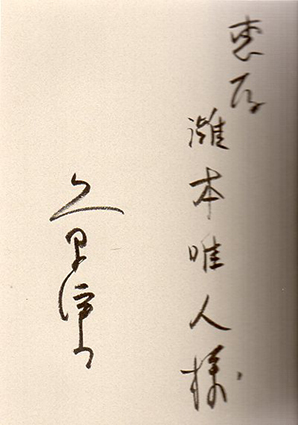 恵存
灘本唯人様
久里洋二